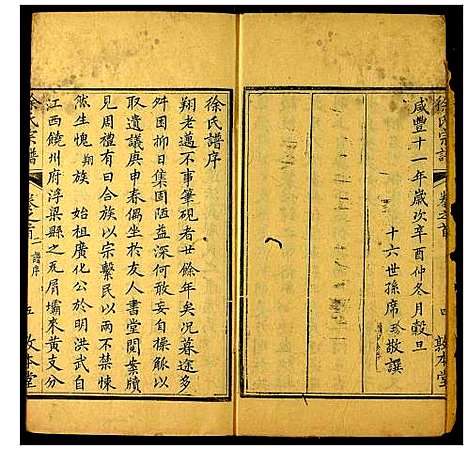 徐氏宗譜
卷之首
四
敦本堂
咸豐十一年歲次辛酉仲冬月穀旦
十六世孫席珍敬譔
徐氏譜序
翔老邁不事筆硯者廿餘年矣況暮途多
舛困抑日集固陋益深何敢妄自操觚以
取遺議庚申春偶坐于友人書堂閱案牘
見周禮有曰合族以宗繫民以兩不禁悚
然生愧翔族 始祖廣化公於明洪武自
江西饒州府浮梁縣之瓦屑壩來黃支分
徐氏宗譜
卷之首
一譜序
五
敦本堂